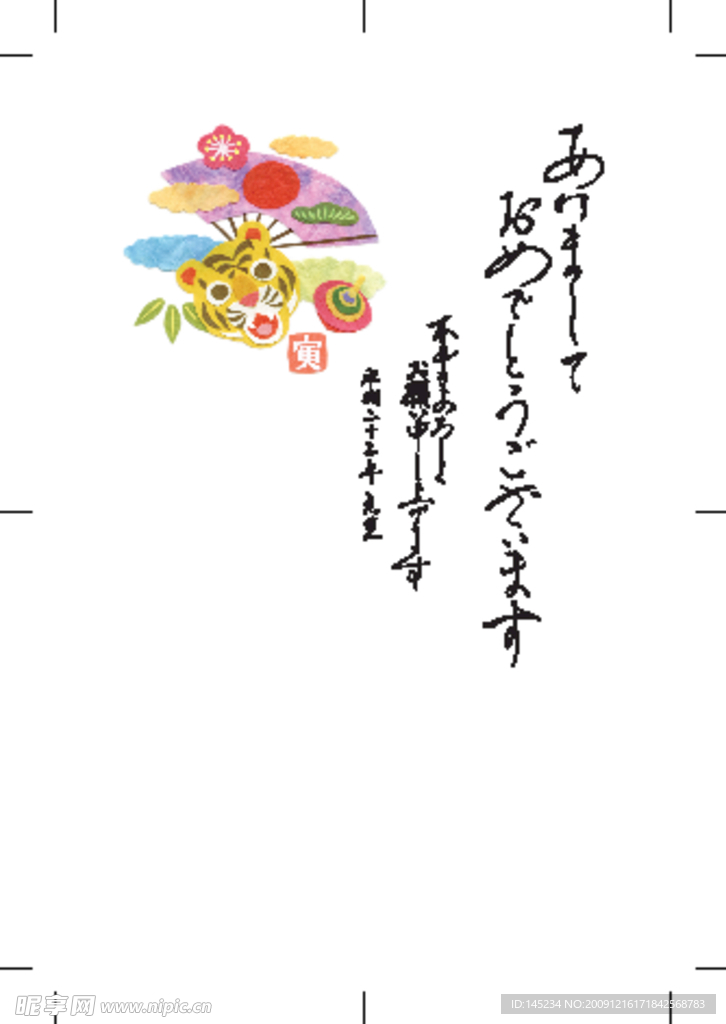 あけまして
おめでとうございます
本年もよろしく
お願い申し上げます
平成二十二年 元旦
寅
昵享网 www.nipic.cn
ID:145234 NO:20091216171842568783